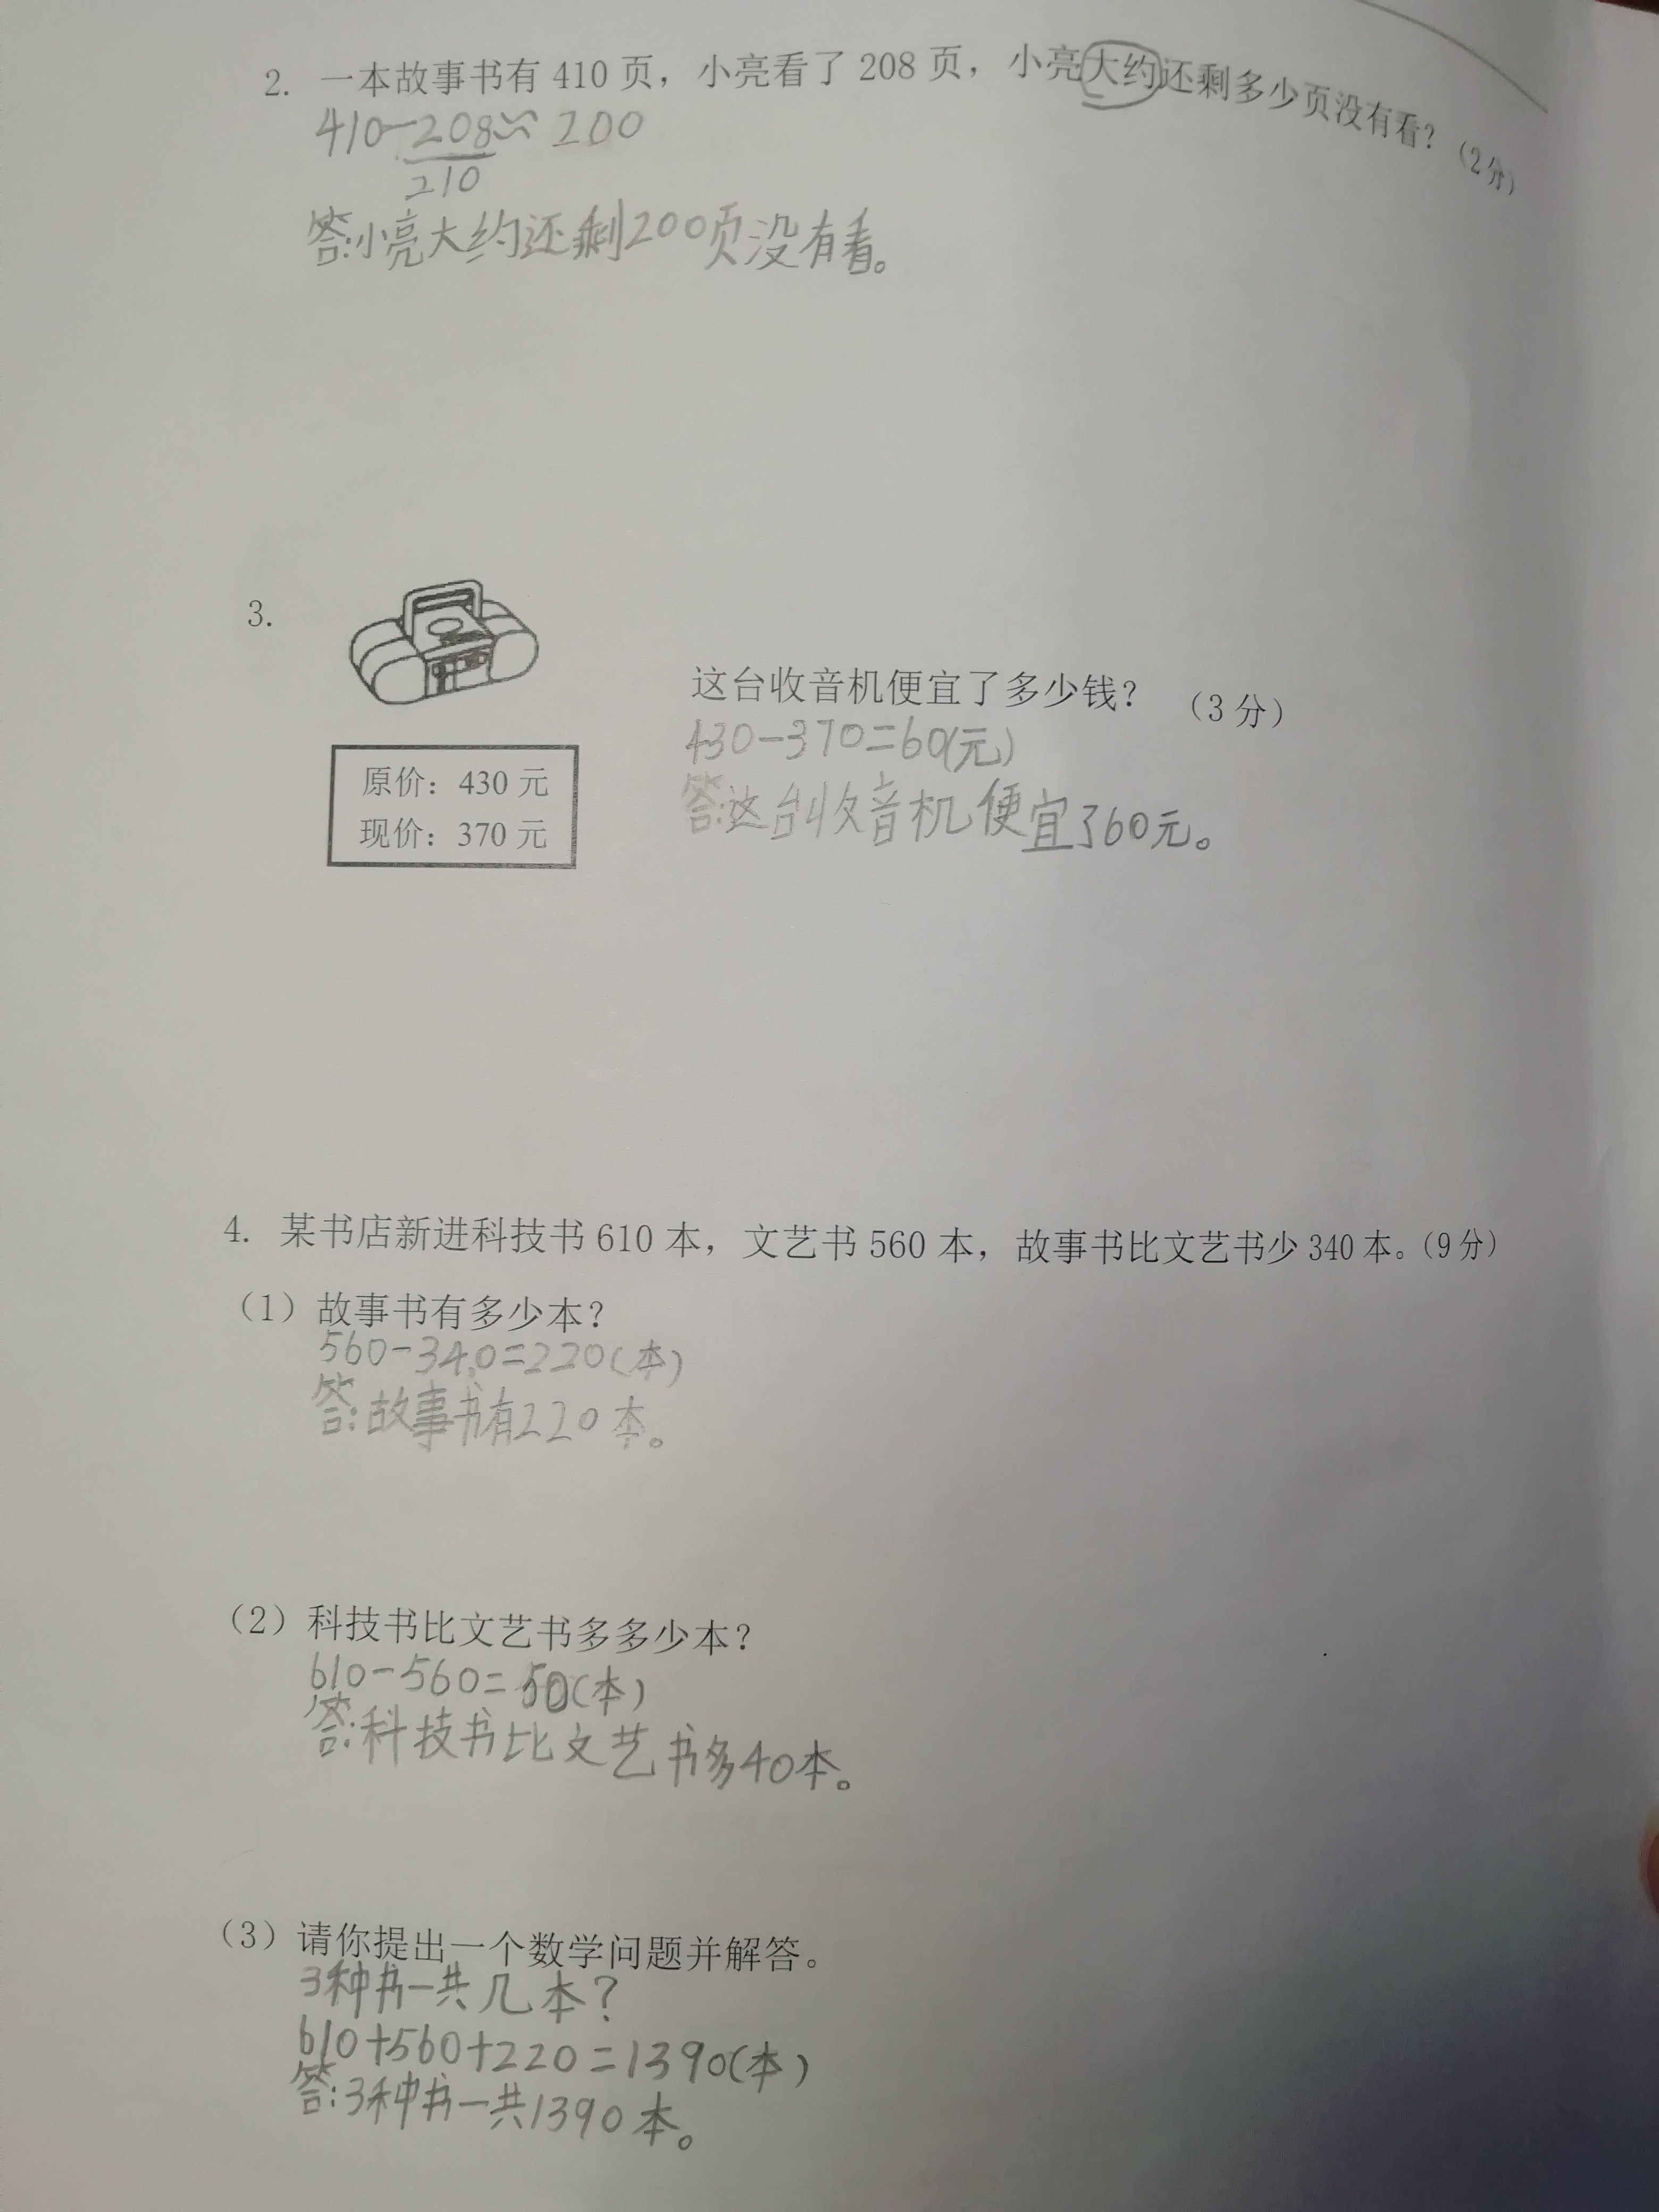 2. 一本故事书有 410 页，小亮看了 208 页，小亮大约还剩多少页没有看？（2分）
410-208≈200
210
答:小亮大约还剩200页没有看。
3.
这台收音机便宜了多少钱？（3分）
430-370=60(元)
答:这台收音机便宜了60元。
原价：430 元
现价：370 元
4. 某书店新进科技书 610 本，文艺书 560 本，故事书比文艺书少 340 本。（9分）
（1）故事书有多少本？
560-340=220(本)
答:故事书有220本。
（2）科技书比文艺书多多少本？
610-560=50(本)
答:科技书比文艺书多40本。
（3）请你提出一个数学问题并解答。
3种书一共几本？
610+560+220=1390(本)
答:3种书一共1390本。